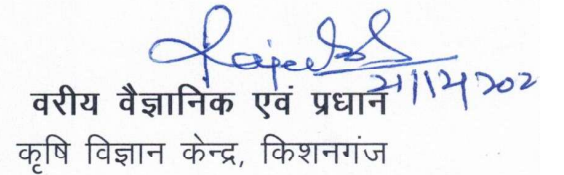 वरीय वैज्ञानिक एवं प्रधान
कृषि विज्ञान केन्द्र, किशनगंज